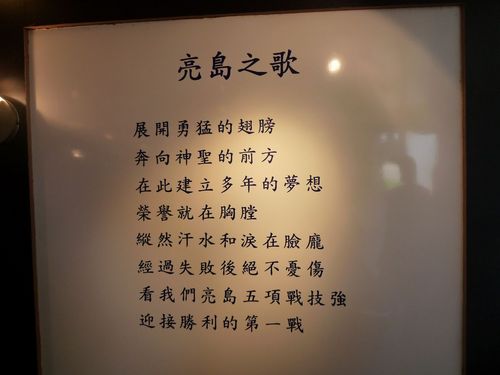 亮島之歌
展開勇猛的翅膀
奔向神聖的前方
在此建立多年的夢想
榮譽就在胸膛
縱然汗水和淚在臉龐
經過失敗後絕不憂傷
看我們亮島五項戰技強
迎接勝利的第一戰